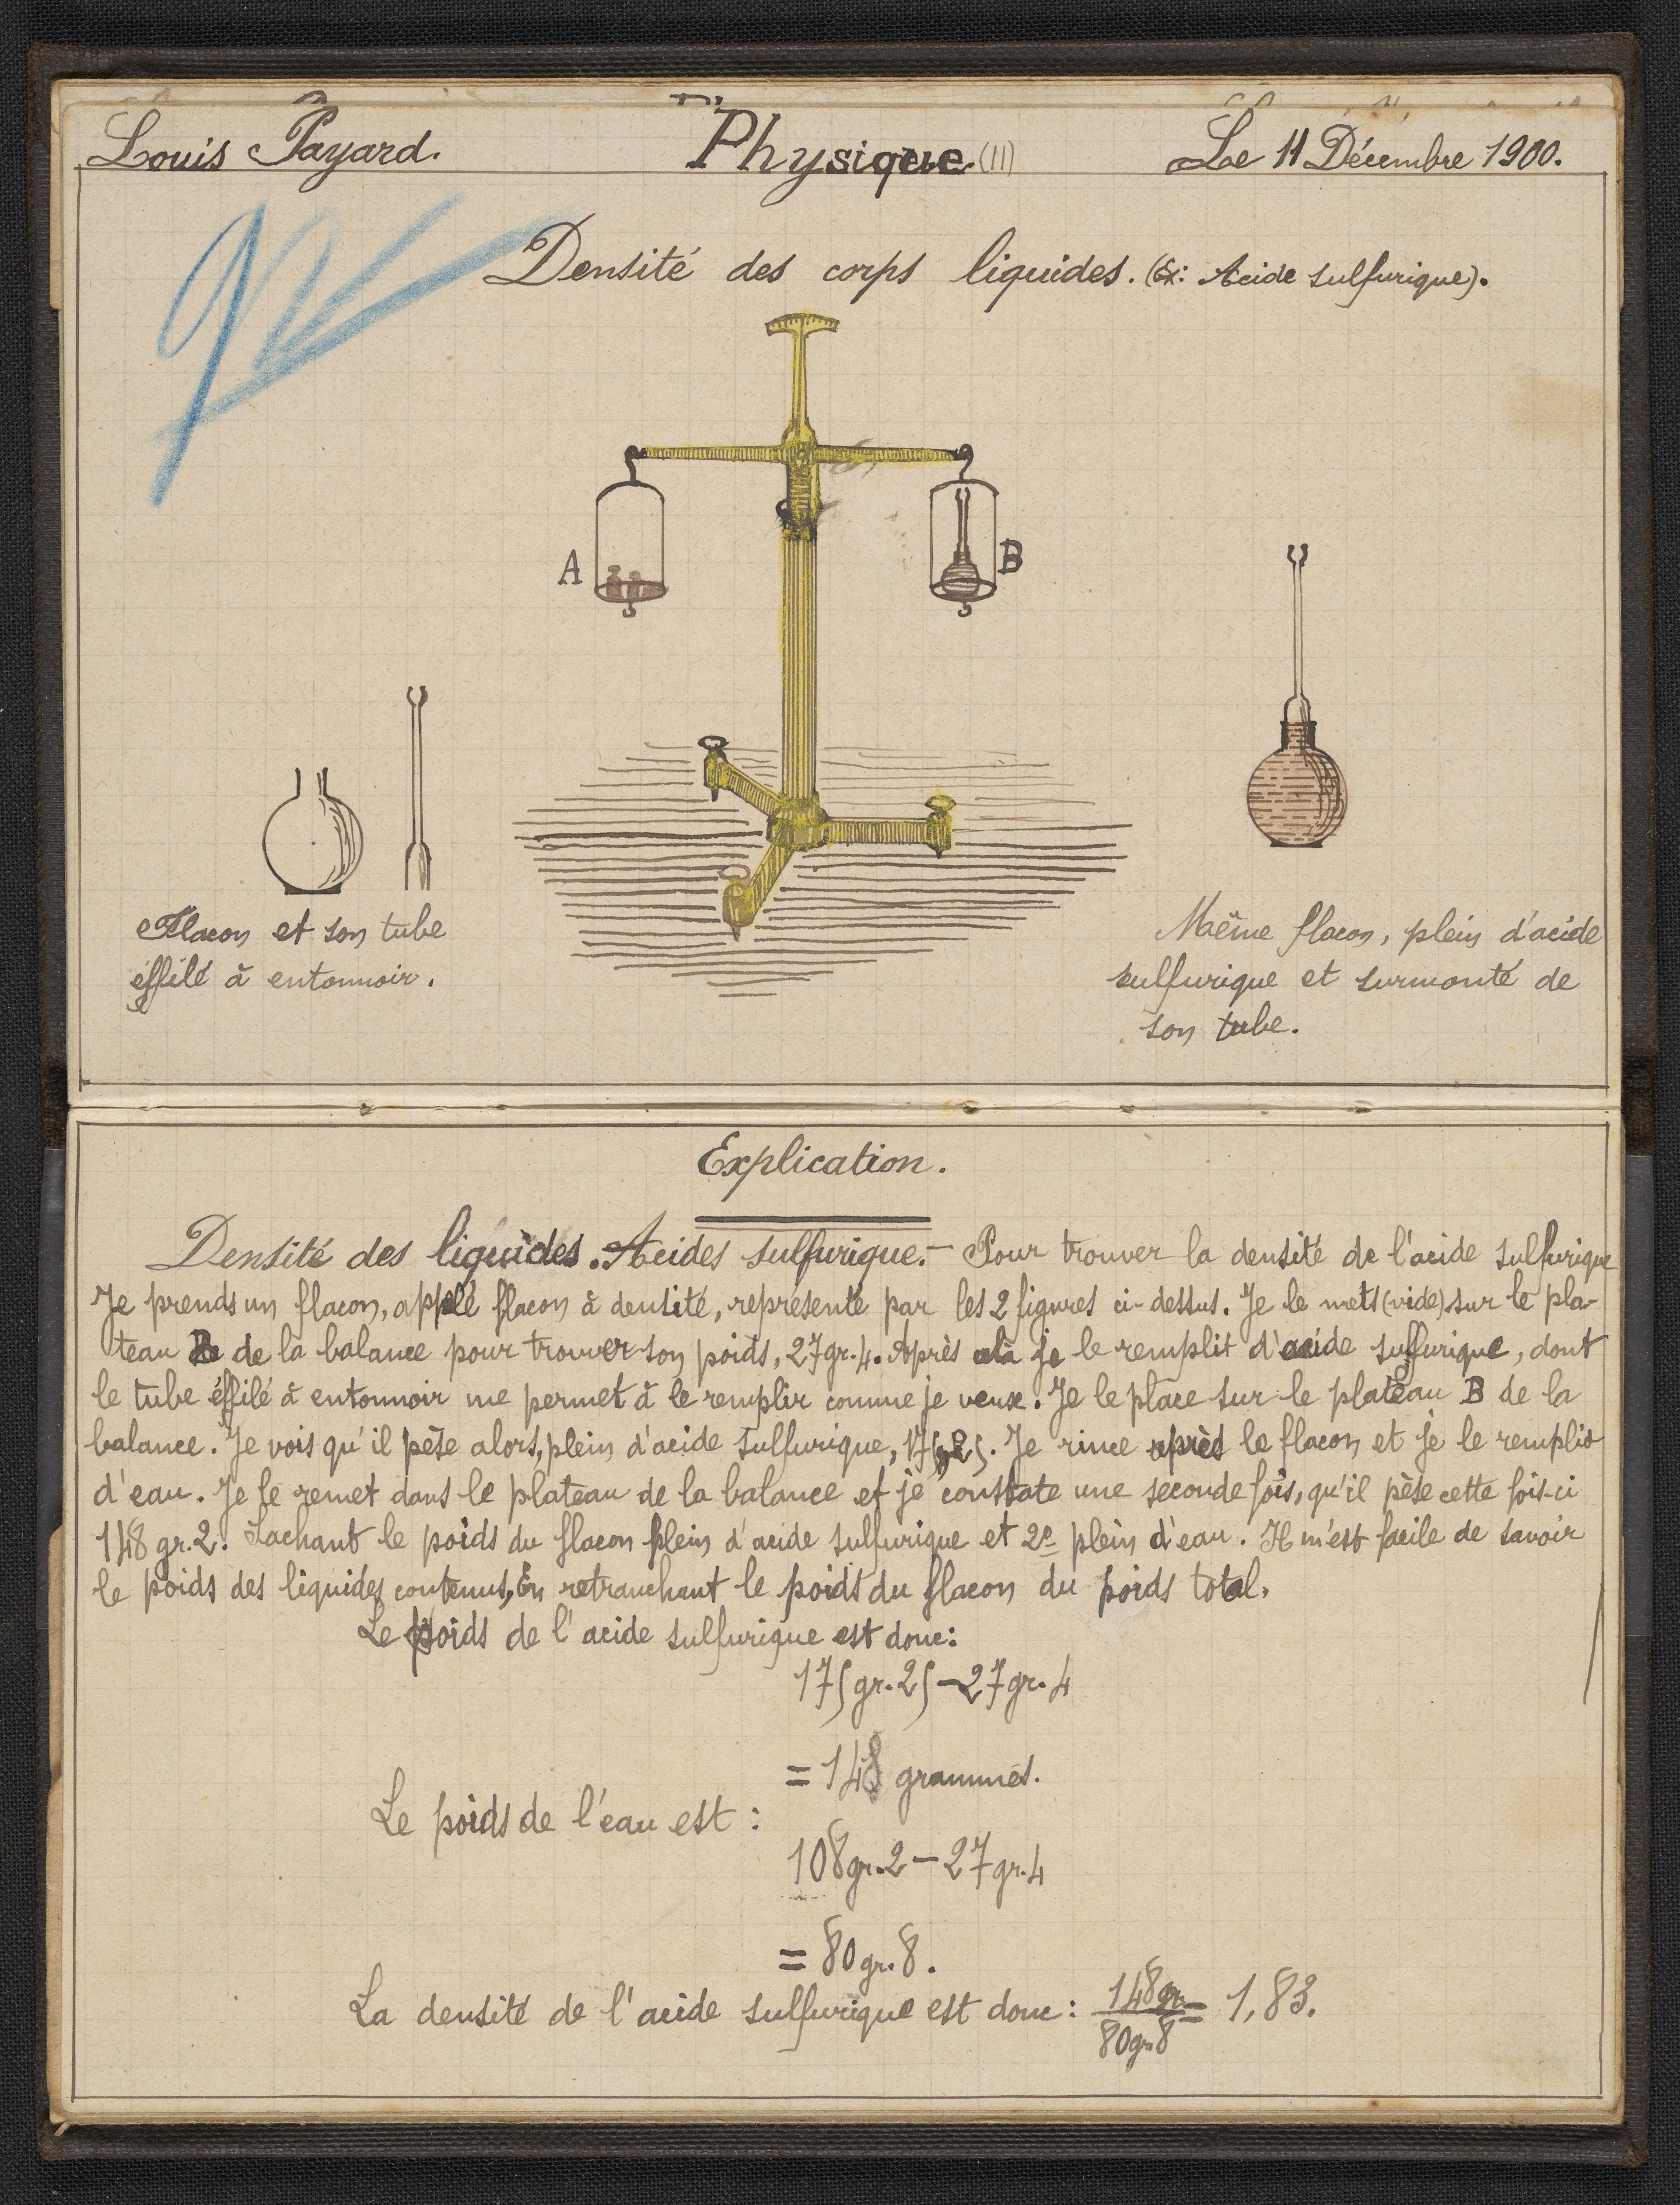 Louis Payard. Physique (11) Le 11 Décembre 1900.
9
Densité des corps liquides. (Ex: Acide sulfurique).
A B
Flacon et son tube
éffilé à entonnoir.
Même flacon, plein d'acide
sulfurique et surmonté de
son tube.
Explication.
Densité des liquides. Acides sulfurique. – Pour trouver la densité de l'acide sulfurique
Je prends un flacon, applé flacon à densité, représenté par les 2 figures ci-dessus. Je le mets (vide) sur le pla-
teau B de la balance pour trouver son poids, 27gr.4. Après cela je le remplit d'acide sulfurique, dont
le tube éffilé à entonnoir me permet à le remplir comme je veux. Je le place sur le plateau B de la
balance. Je vois qu'il pèse alors, plein d'acide sulfurique, 175,25. Je rince après le flacon et je le remplis
d'eau. Je le remet dans le plateau de la balance et je constate une seconde fois, qu'il pèse cette fois-ci
148 gr.2. Sachant le poids du flacon plein d'acide sulfurique et 2e plein d'eau. Il m'est facile de savoir
le poids des liquides contenus, En retranchant le poids du flacon du poids total.
Le poids de l'acide sulfurique est donc:
175gr.25 – 27gr.4
= 148 grammes.
Le poids de l'eau est :
108gr.2 – 27gr.4
= 80gr.8.
La densité de l'acide sulfurique est donc: 148gr. / 80gr.8 = 1,83.